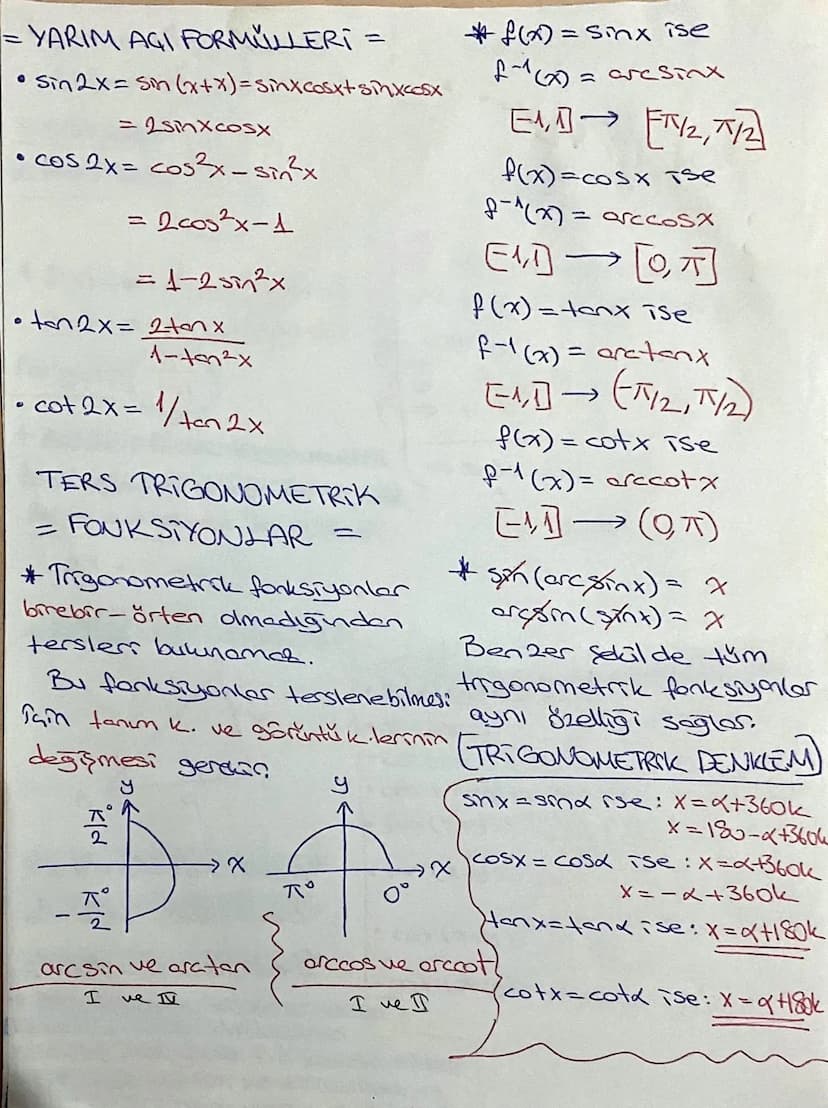 = YARIM AÇI FORMÜLLERİ =
• sin2x = sin(x+x) = sinxcosx+sinxcosx
= 2sinxcosx
• cos2x = cos²x - sin²x
= 2cos²x-1
= 1-2sin²x
• tan2x = 2tanx
1-tan²x
• cot2x = 1/tan2x
TERS TRİGONOMETRİK
= FONKSİYONLAR =
* Trigonometrik fonksiyonlar
birebir-örten olmadığından
tersleri bulunamaz.
Bu fonksiyonlar terslenebilmesi
için tanım k. ve görüntü k.lerinin
değişmesi gerekir.
y
π°
2
x
-π°
2
arcsin ve arctan
I ve IV
y
x
π°
0°
arccos ve arccot
I ve II
* f(x) = sinx ise
f⁻¹(x) = arcsinx
[-1,1] → [-π/2, π/2]
f(x) = cosx ise
f⁻¹(x) = arccosx
[-1,1] → [0, π]
f(x) = tanx ise
f⁻¹(x) = arctanx
[-1,1] → (-π/2, π/2)
f(x) = cotx ise
f⁻¹(x) = arccotx
[-1,1] → (0,π)
* sin(arcsinx) = x
arcsin(sinx) = x
Benzer şekilde tüm
trigonometrik fonksiyonlar
aynı özelliği sağlar.
[TRİGONOMETRİK DENKLEM]
sinx = sinα ise: x = α+360k
x = 180-α+360k
cosx = cosα ise: x = α+360k
x = -α+360k
tanx = tanα ise: x = α+180k
cotx = cotα ise: x = α+180k